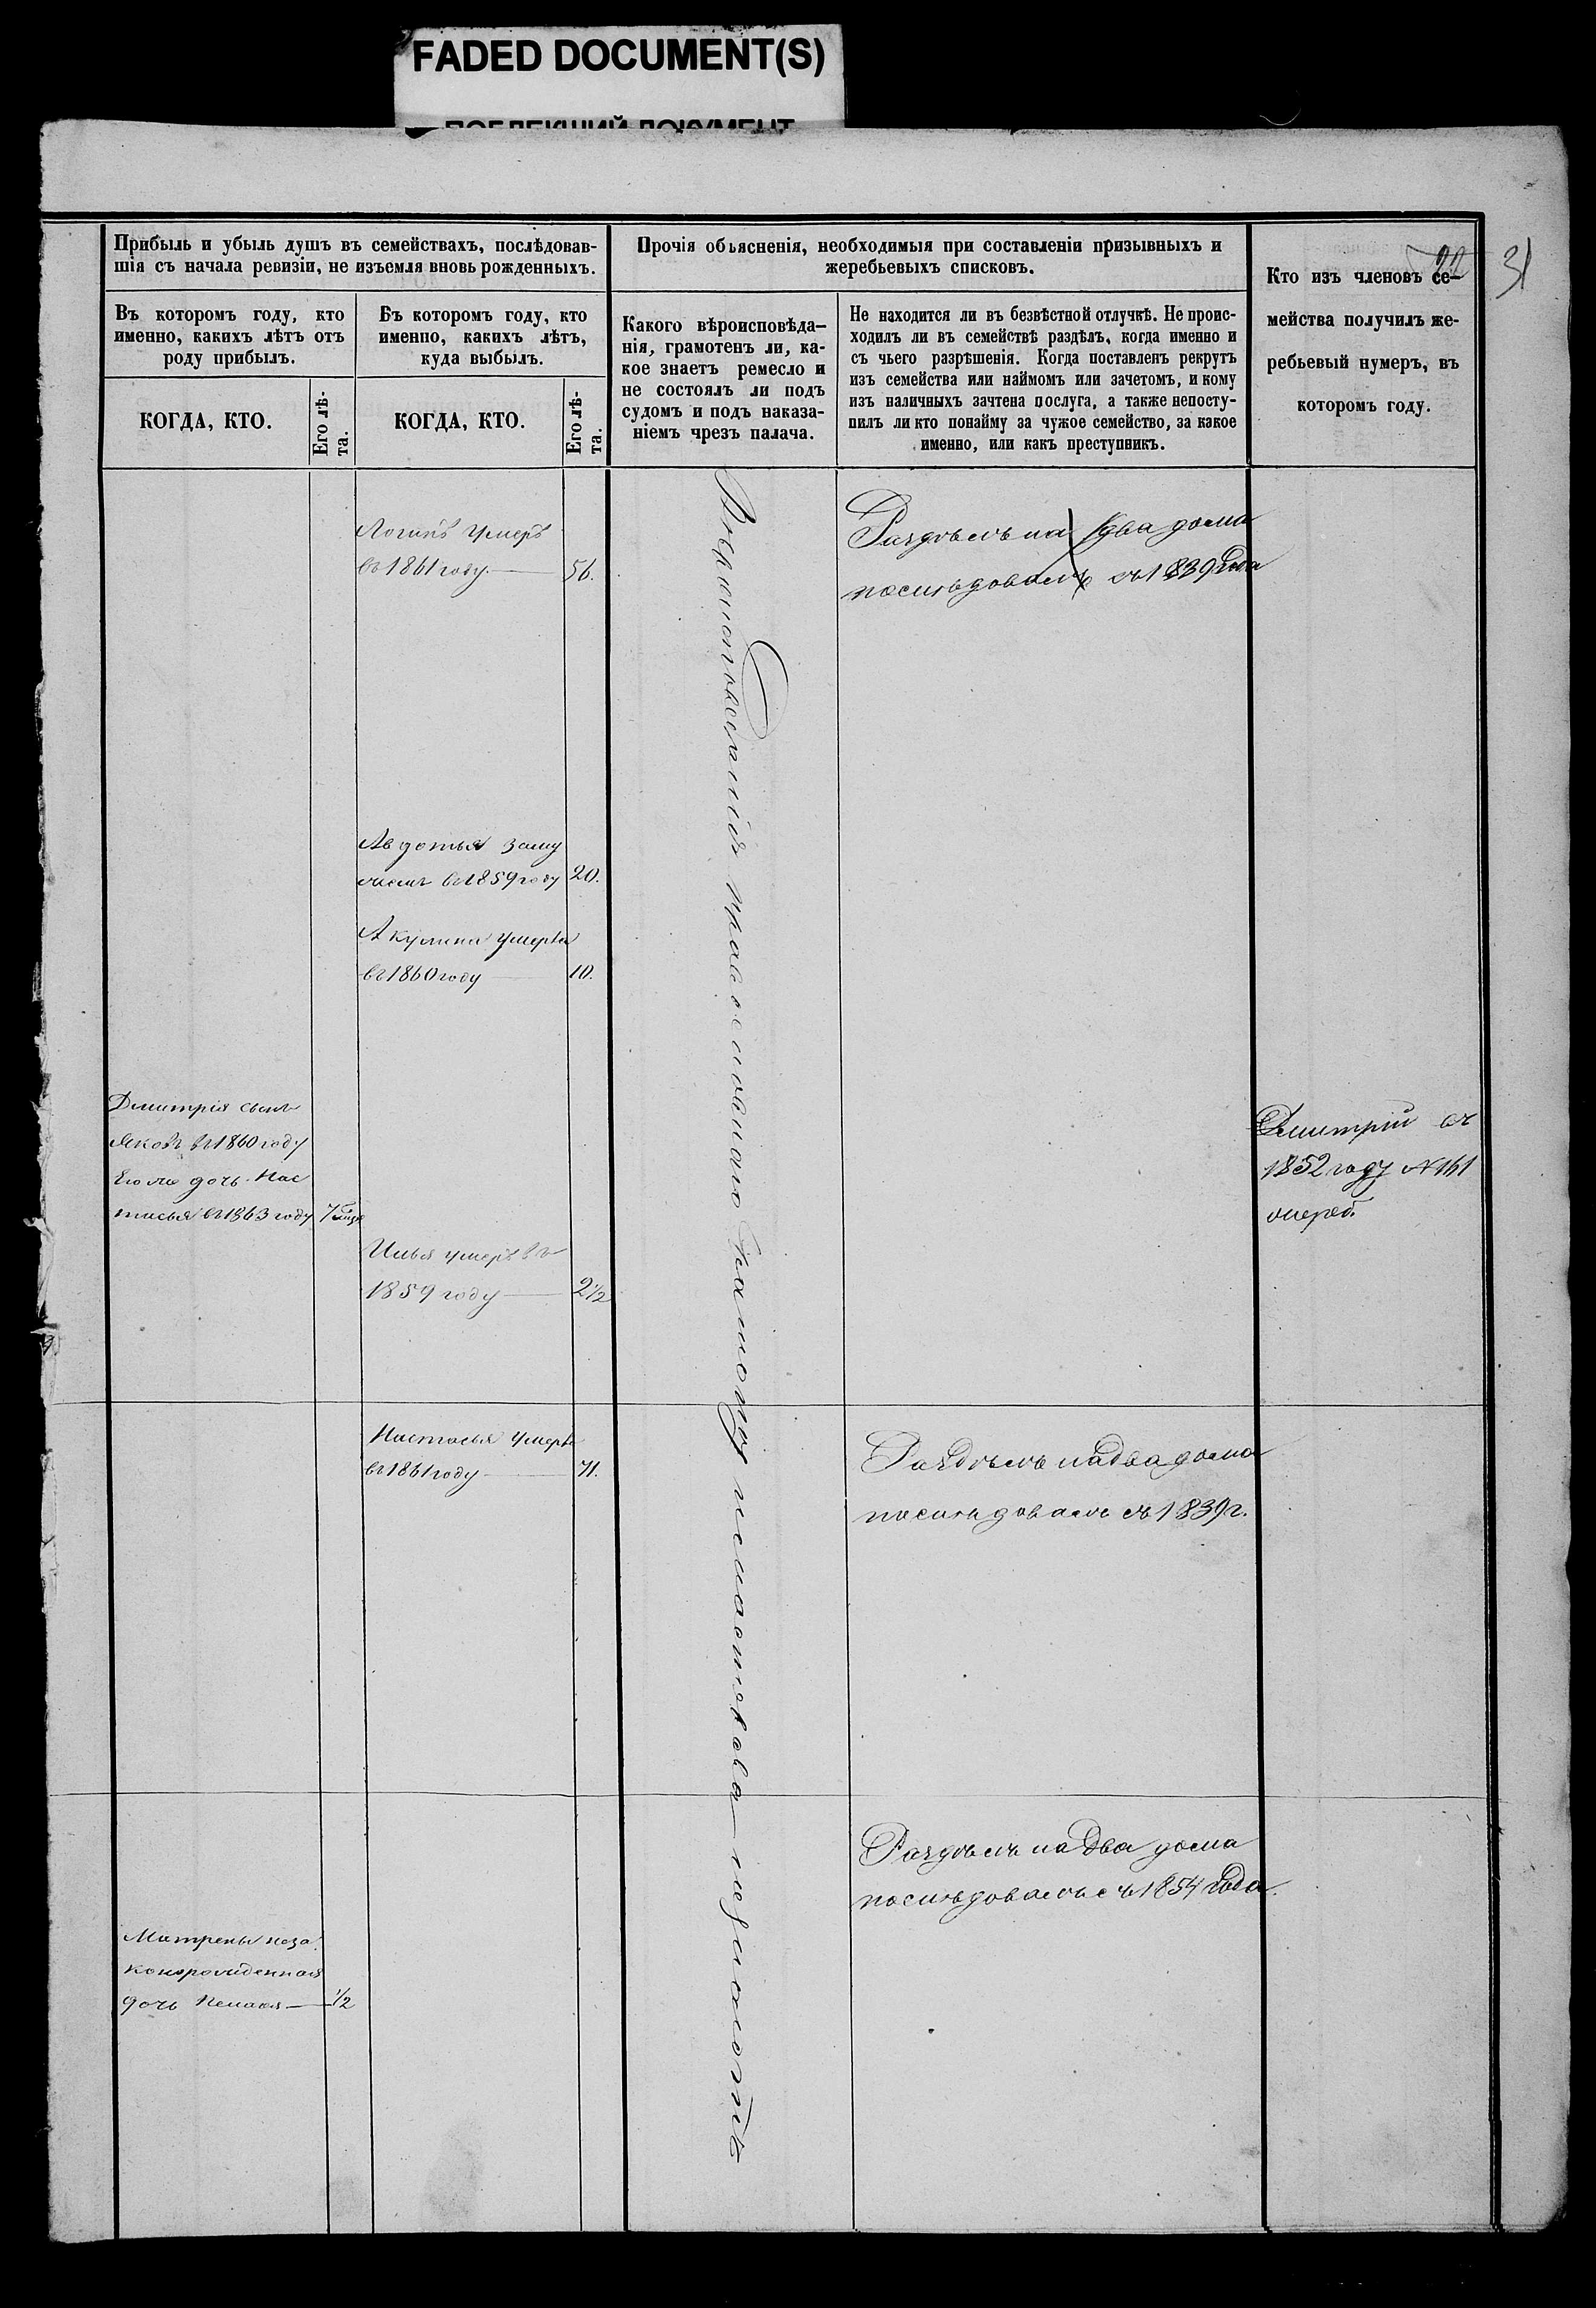 FADED DOCUMENT(S)
22 31
Прибыль и убыль душъ въ семействахъ, послѣдовав-
шія съ начала ревизіи, не изъемля вновь рожденныхъ.
Прочія объясненія, необходимыя при составленіи призывныхъ и
жеребьевыхъ списковъ.
Кто изъ членовъ се-
мейства получилъ же-
ребьевый нумеръ, въ
которомъ году.
Въ которомъ году, кто
именно, какихъ лѣтъ отъ
роду прибылъ.
Въ которомъ году, кто
именно, какихъ лѣтъ,
куда выбылъ.
Какого вѣроисповѣда-
нія, грамотенъ ли, ка-
кое знаетъ ремесло и
не состоялъ ли подъ
судомъ и подъ наказа-
ніемъ чрезъ палача.
Не находится ли въ безвѣстной отлучкѣ. Не проис-
ходилъ ли въ семействѣ раздѣлъ, когда именно и
съ чьего разрѣшенія. Когда поставленъ рекрутъ
изъ семейства или наймомъ или зачетомъ, и кому
изъ наличныхъ зачтена послуга, а также непосту-
пилъ ли кто понайму за чужое семейство, за какое
именно, или какъ преступникъ.
КОГДА, КТО.
Его лѣ-
та.
КОГДА, КТО.
Его лѣ-
та.
Логинъ умеръ
въ 1861 году. 56.
Раздѣлъ на два дома
послѣдовалъ съ 1839 года
Авдотья заму
жемъ въ 1859 году 20.
Акулина умерла
въ 1860 году 10.
Дмитрія сынъ
Яковъ въ 1860 году
Его же дочь Нас
тасья въ 1863 году
Дмитрій въ
1852 году N 161
очеред.
Илья умеръ въ
1859 году 2 1/2
Настасья умерла
въ 1861 году 71.
Раздѣлъ на два дома
послѣдовалъ съ 1839 г.
Раздѣлъ на два дома
послѣдовалъ съ 1854 года.
Матрены неза
конорожденная
дочь Пелагея 1/2
Вѣроисповѣданія православнаго грамоту